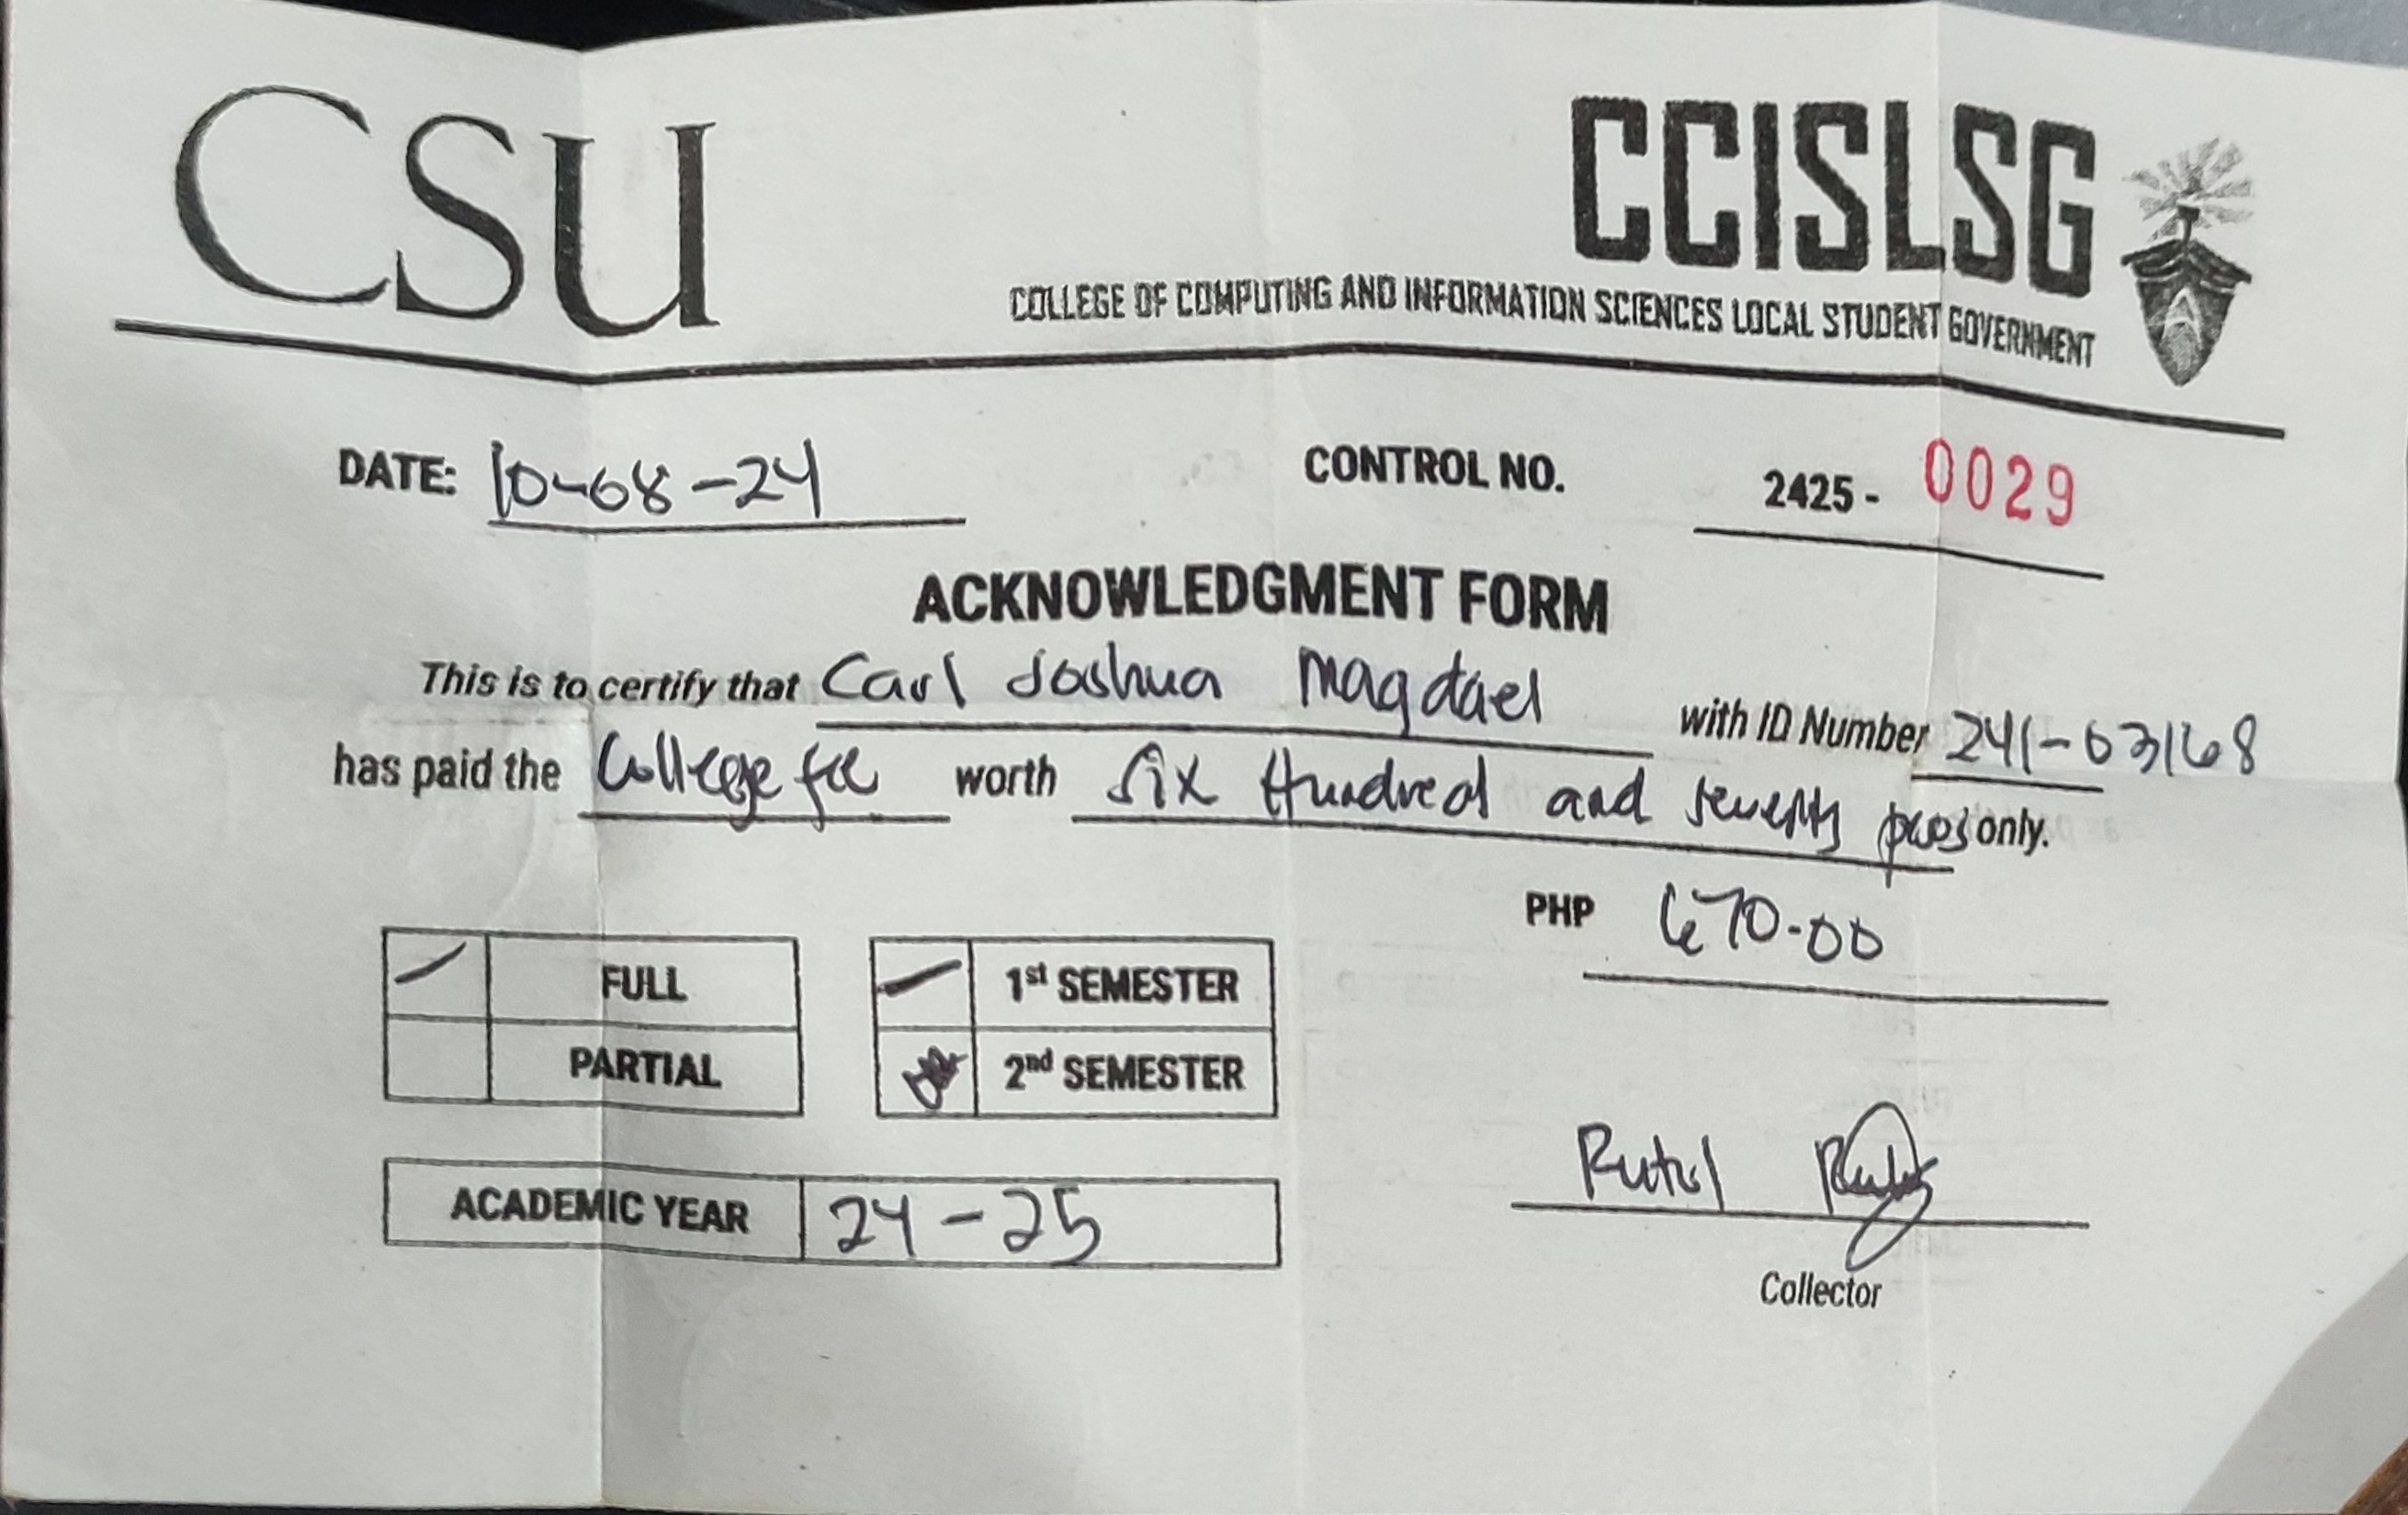 CSU
CCISLSG
COLLEGE OF COMPUTING AND INFORMATION SCIENCES LOCAL STUDENT GOVERNMENT
DATE: 10-08-24 CONTROL NO. 2425 - 0029
ACKNOWLEDGMENT FORM
This is to certify that Carl Joshua Magdael with ID Number 241-03168
has paid the College fee worth Six Hundred and seventy pesos only.
PHP 670.00
FULL 1st SEMESTER
PARTIAL 2nd SEMESTER
ACADEMIC YEAR 24-25
Collector